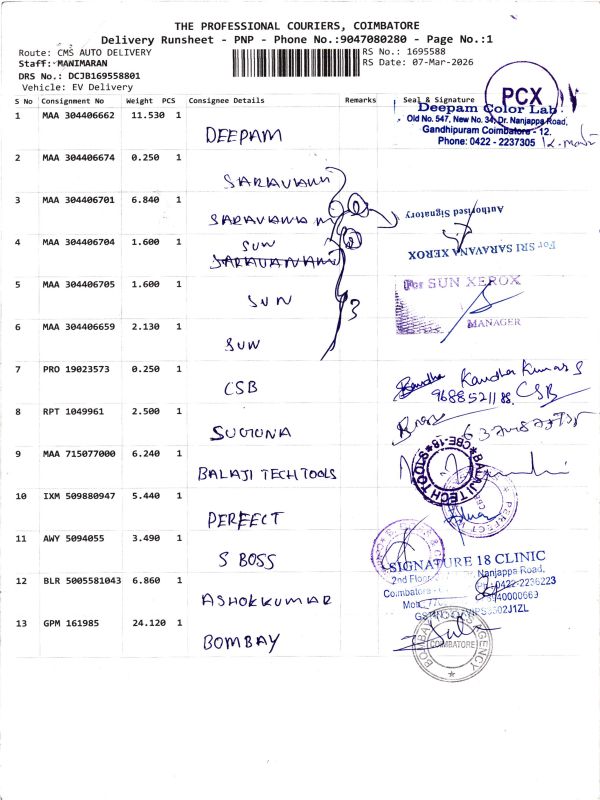 THE PROFESSIONAL COURIERS, COIMBATORE
Delivery Runsheet - PNP - Phone No.:9047080280 - Page No.:1
Route: CMS AUTO DELIVERY
RS No.: 1695588
Staff: MANIMARAN
RS Date: 07-Mar-2026
DRS No.: DCJB169558801
Vehicle: EV Delivery
PCX
S No Consignment No Weight PCS Consignee Details Remarks Seal & Signature
1 MAA 304406662 11.530 1 DEEPAM
Deepam Color Lab
Old No. 547, New No. 34, Dr. Nanjappa Road,
Gandhipuram Coimbatore - 12.
Phone: 0422 - 2237305
2 MAA 304406674 0.250 1 SARAVANA
3 MAA 304406701 6.840 1 SARAVANA
Authorised Signatory
For SRI SARAVANA XEROX
4 MAA 304406704 1.600 1 SUN
SARAVANAM
5 MAA 304406705 1.600 1 SUN
3
For SUN XEROX
MANAGER
6 MAA 304406659 2.130 1 SUN
7 PRO 19023573 0.250 1 CSB
Kandha Kumar S
9688521188. CSB
8 RPT 1049961 2.500 1 SUGUNA
9 MAA 715077000 6.240 1 BALAJI TECH TOOLS
BALAJI TECH TOOLS CBE-18
10 IXM 509880947 5.440 1 PERFECT
11 AWY 5094055 3.490 1 S BOSS
SIGNATURE 18 CLINIC
2nd Floor Nanjappa Road,
12 BLR 5005581043 6.860 1 ASHOKKUMAR
Coimbatore Ph: 0422-2236223
Mob:
13 GPM 161985 24.120 1 BOMBAY
BOMBAY AGENCY
COIMBATORE